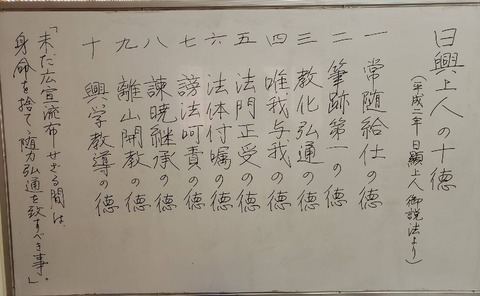 日興上人の十徳
(平成二年 日顕上人 御説法より)
一 常随給仕の徳
二 筆跡第一の徳
三 教化弘通の徳
四 唯我与我の徳
五 法門正受の徳
六 法体付嘱の徳
七 謗法呵責の徳
八 諌暁継承の徳
九 離山開教の徳
十 興学教導の徳
「未だ広宣流布せざる間は、
身命を捨て、随力弘通を致すべき事。」